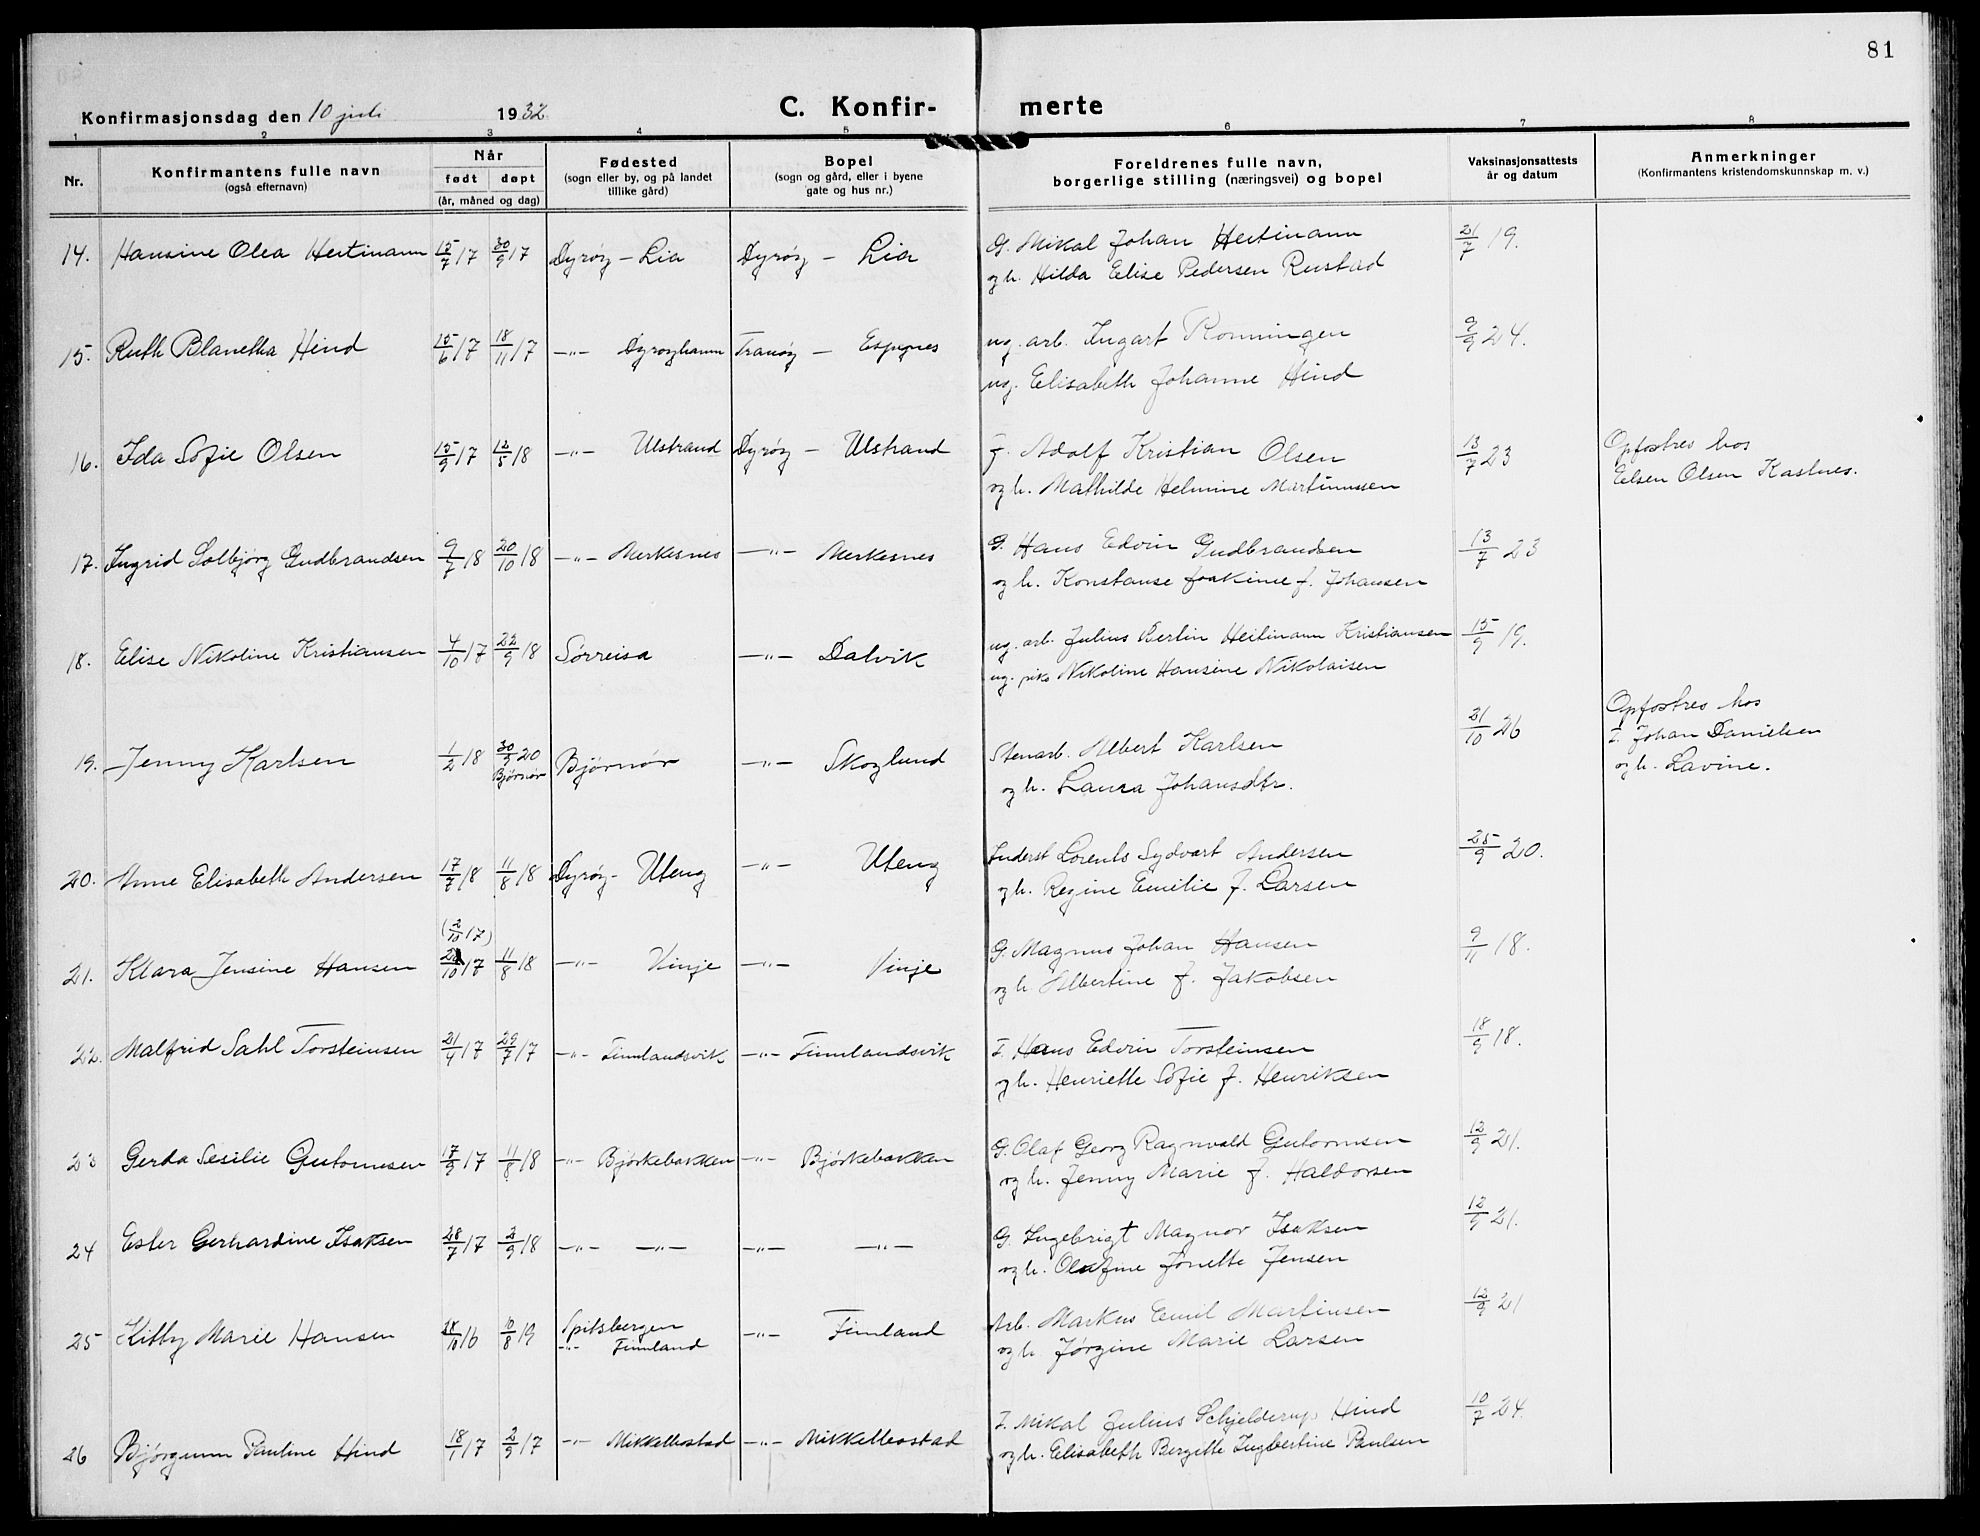 81
Konfirmasjonsdag den 10 juli 1932
C. Konfirmerte
1 2 3 4 5 6 7 8
Nr. Konfirmantens fulle navn (også efternavn) Når født døpt (år, måned og dag) Fødested (sogn eller by, og på landet tillike gård) Bopel (sogn og gård, eller i byene gate og hus nr.) Foreldrenes fulle navn, borgerlige stilling (næringsvei) og bopel Vaksinasjonsattests år og datum Anmerkninger (Konfirmantens kristendomskunnskap m. v.)
14. Hansine Olea Heitmann 15/7 17 30/9 17 Dyrøy – Lia Dyrøy – Lia G. Mikal Johan Heitmann 21/7 19.
og h. Hilda Elise Pedersen Rustad
15. Ruth Blanetha Hind 15/6 17 18/11 17 —"— Dyrøyhamn Tranøy – Espenes ug. arb. Ingart Ronningen 9/9 24.
ug. Elisabeth Johanne Hind
16. Ida Sofie Olsen 15/9 17 12/5 18 —"— Ulstrand Dyrøy – Ulstrand F. Adolf Kristian Olsen 13/7 23 Opfostres hos
og h. Mathilde Helmine Martinussen Elsen Olsen Kastnes.
17. Ingrid Solbjørg Gudbrandsen 9/7 18 20/10 18 —"— Merkesnes —"— Merkesnes G. Hans Edvin Gudbrandsen 13/7 23
og h. Konstanse Joakime f. Johansen
18. Elise Nikoline Kristiansen 4/10 17 22/9 18 Sørreisa —"— Dalvik ug. arb. Julius Bertin Heitmann Kristiansen 15/9 19.
ug. pike Nikoline Hansine Nikolaisen
19. Jenny Karlsen 1/2 18 30/9 20 Bjørnør Bjørnør —"— Skoglund Stenarb. Albert Karlsen 21/10 26 Opfostres hos
og h. Laura Johansdtr. F. Johan Danielsen
og h. Lavine.
20. Anne Elisabeth Andersen 17/7 18 11/8 18 Dyrøy – Uteng —"— Uteng Inderst Lorents Sydvart Andersen 25/9 20.
og h. Regine Emilie f. Larsen
(2/10 17)
21. Klara Jensine Hansen 17 11/8 18 —"— Vinje —"— Vinje G. Magnus Johan Hansen 9/11 18.
og h Albertine f. Jakobsen
22. Malfrid Sahl Torsteinsen 21/4 17 29/7 17 —"— Finnlandsvik —"— Finnlandsvik F. Hans Edvin Torsteinsen 18/9 18.
og h. Henriette Sofie f. Henriksen
23 Gerda Sesilie Gutormsen 17/9 17 11/8 18 —"— Bjørkebakken —"— Bjørkebakken G. Olaf Georg Ragnvald Gutormsen 12/9 21.
og h. Jenny Marie f. Haldorsen
24 Ester Gerhardine Isaksen 28/7 17 2/9 18 —"— —"— —"— —"— G. Ingebrigt Magnor Isaksen 12/9 21.
og h. Olufine Jonette Jensen
25 Kitty Marie Hansen 16 10/8 19 Spitsbergen —"— Finnland Arb. Markus Emil Martinsen 12/9 21
—"— Finnland og h Jørgine Marie Larsen
26 Bjørgunn Pauline Hind 18/1 17 2/9 17 —"— Mikkelbostad —"— Mikkelbostad F. Mikal Julius Schjelderup Hind 10/7 24.
og h. Elisabeth Bergitte Ingbertine Paulsen